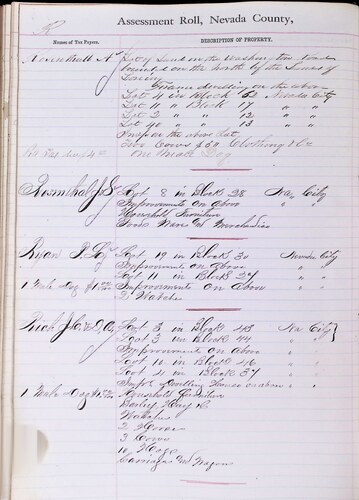 R
Assessment Roll, Nevada County,
Names of Tax Payers.
DESCRIPTION OF PROPERTY.
Rosenthall A. Lot of Land on the Washington road
bounded on the North by the Lands of
Frame dwelling on the above
Lot 4 in Block 52 Nevada City
Lot 11 " Block 17 " "
Lot 2 " " 12 " "
Lot " " 13 " "
Imps on the above Lot
Two Cows $50 Clothing &c
One Male Dog
Rosenthal J. S. Lot 8 in Block 28 Nev City
Improvements on Above
Household Furniture
Goods Wares and Merchandise
Ryan Lot 19 in Block 30 Nevada City
Improvements on Above " "
Lot 11 in Block 37 " "
1 Male Dog Improvements on Above " "
2 Watches
Rich Lot 3 in Block 43 Nev City
Lot 3 in Block 44 "
Improvements on Above "
Lot 10 in Block 46 "
Lot 4 in Block 37 "
Impts Dwelling House on above "
1 Male Dog Household Furniture
Barley Hay &c
Watches
2 Horses
3 Cows
10 Hogs
Carriages and Wagons